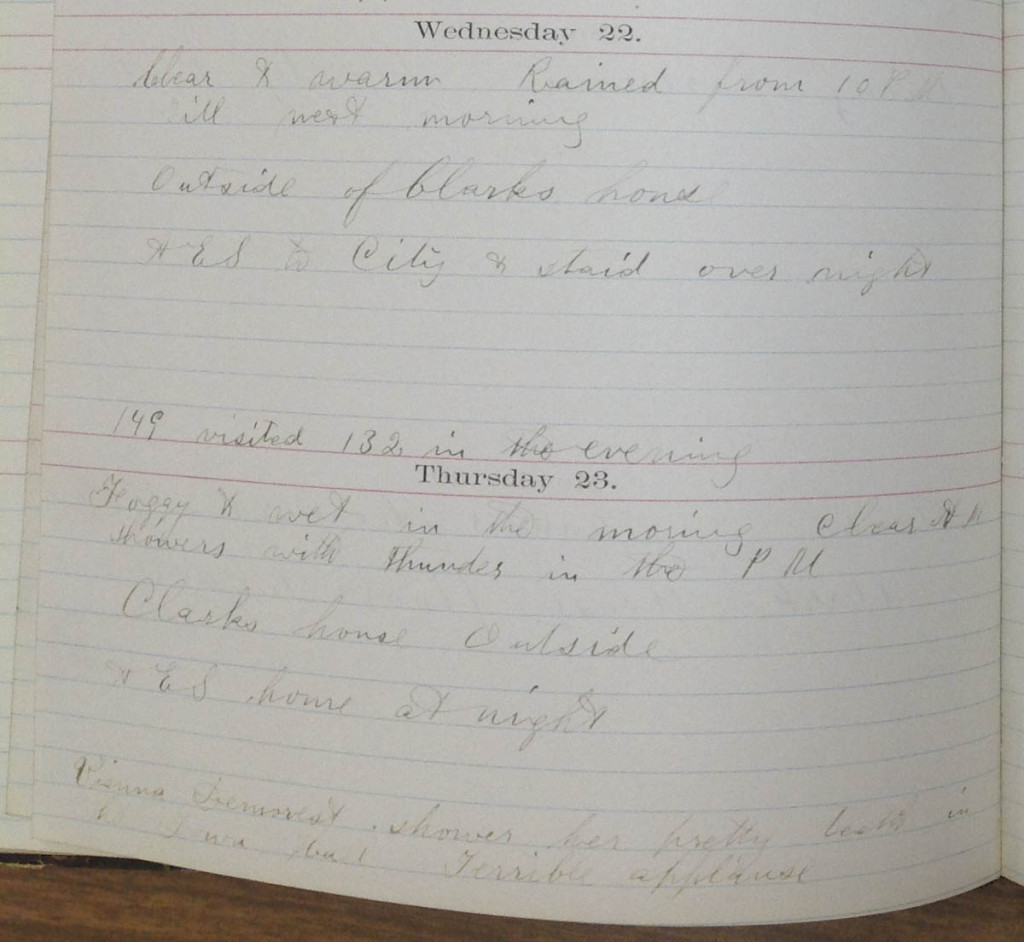 Wednesday 22.
Clear & warm Rained from 10 P M
till next morning
Outside of Clarks house
H E S to City & staid over night
149 visited 132 in the evening
Thursday 23.
Foggy & wet in the moring Clear A M
showers with thunder in the P M
Clarks house Outside
H E S home at night
Vienna Demorest shower her pretty in
Terrible applause